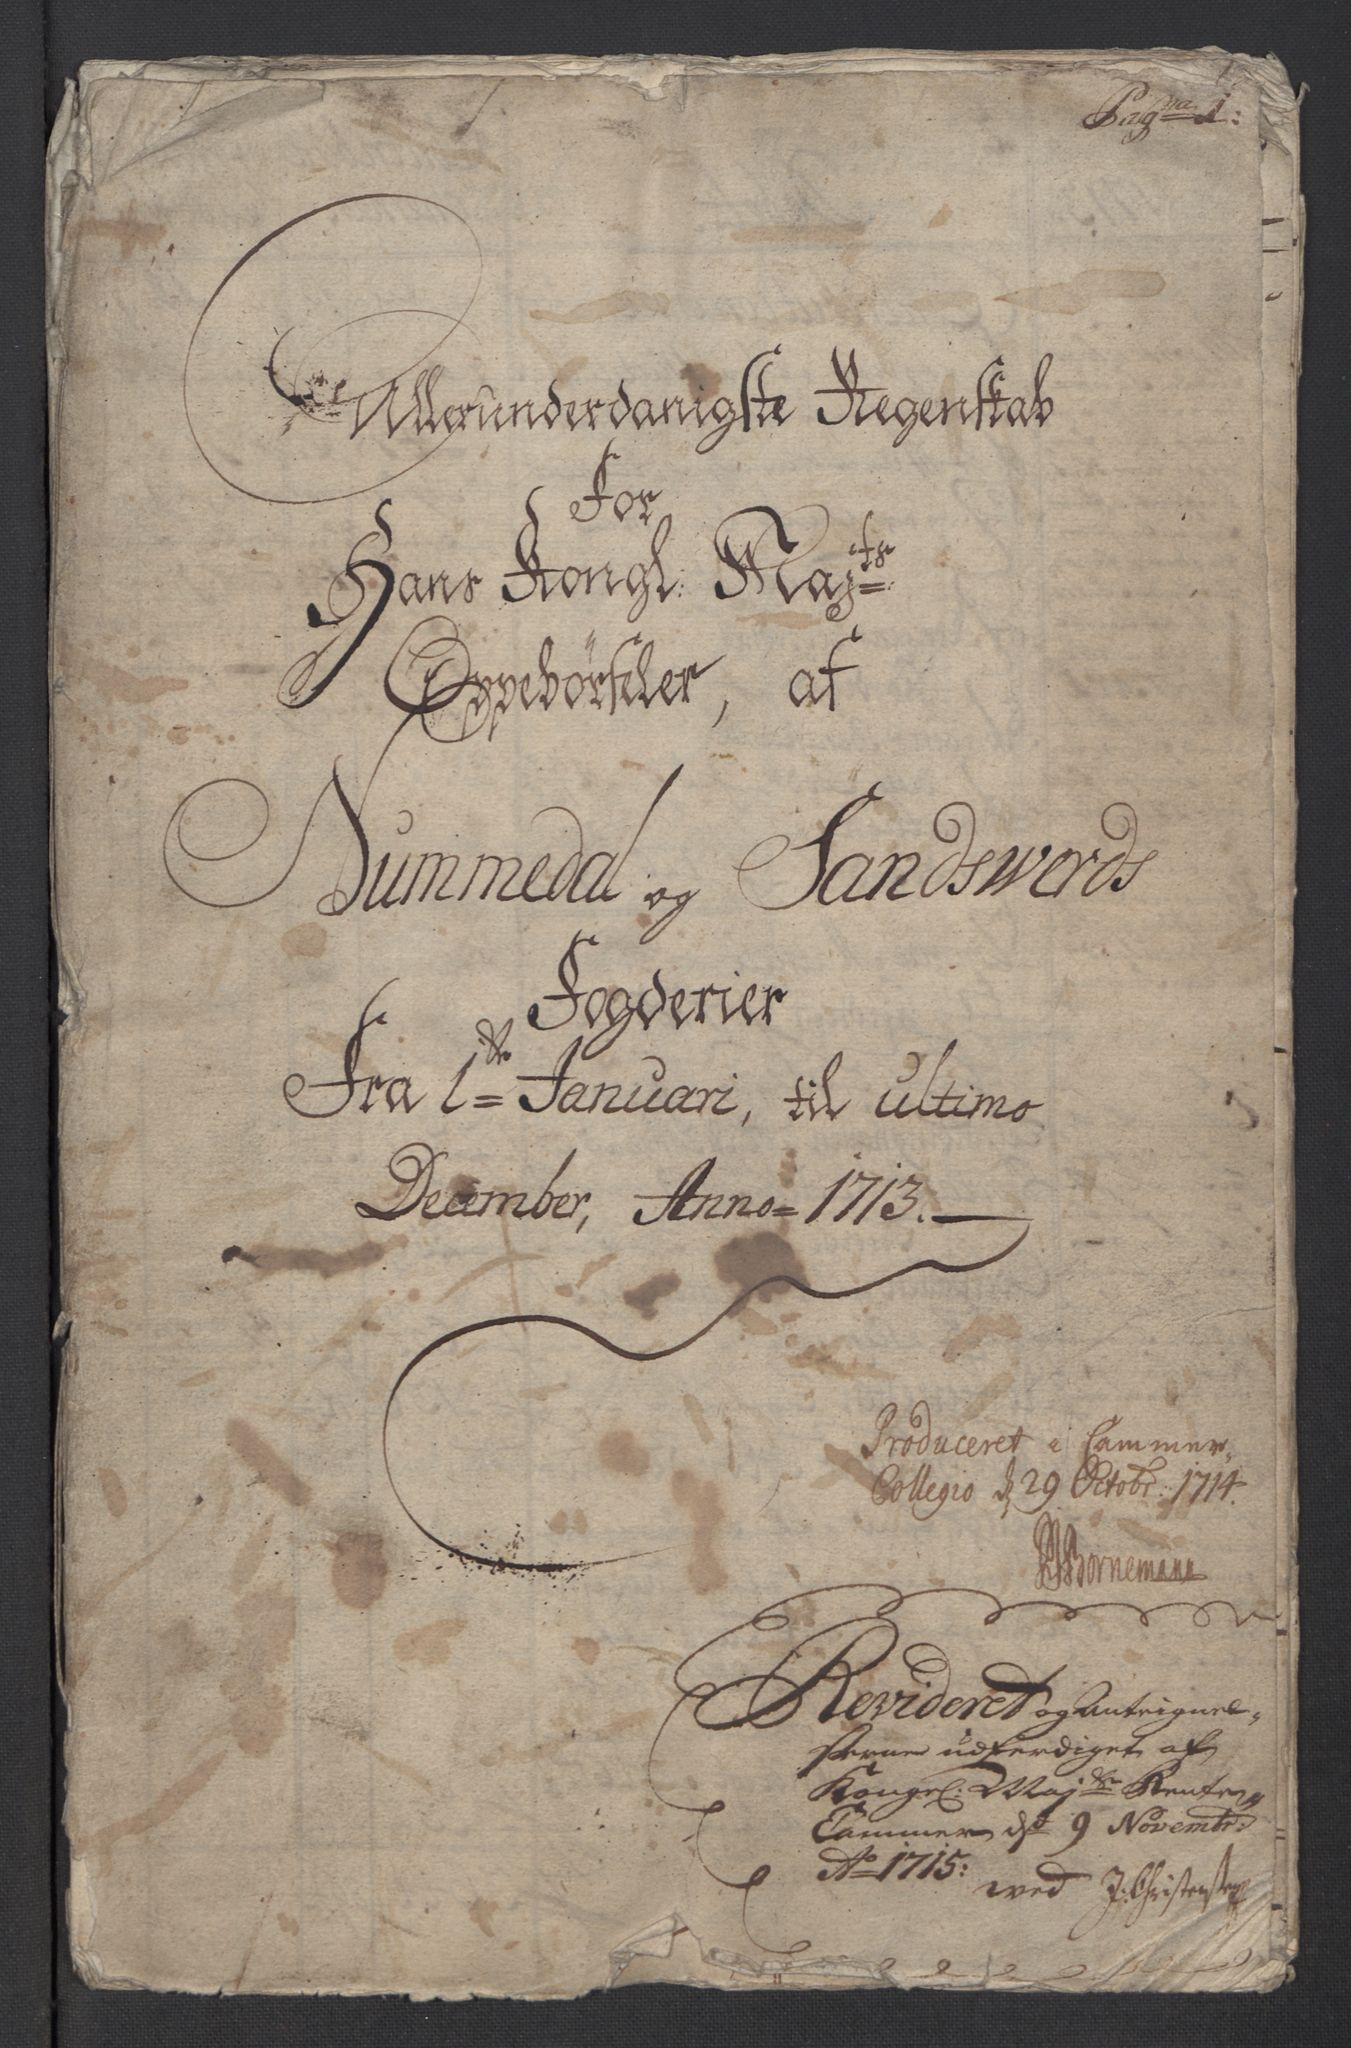 Pagna 1:
Allerunderdanigste Regenskab
For
Hans Kongl: Majts:
Oppebörseler, af
Nummedal og Sandswerds
Fogderier
Fra 1= Januari, til ultimo
December, Anno= 1713.
Produceret i Cammer-
Collegio d 29 Octobr: 1714.
Bornemann
Revideret og Antegnel-
serne udferdiget af
Kongel: Majts Rente-
Cammer d 9 Novembr:
Ao 1715:
wed J: Christensen